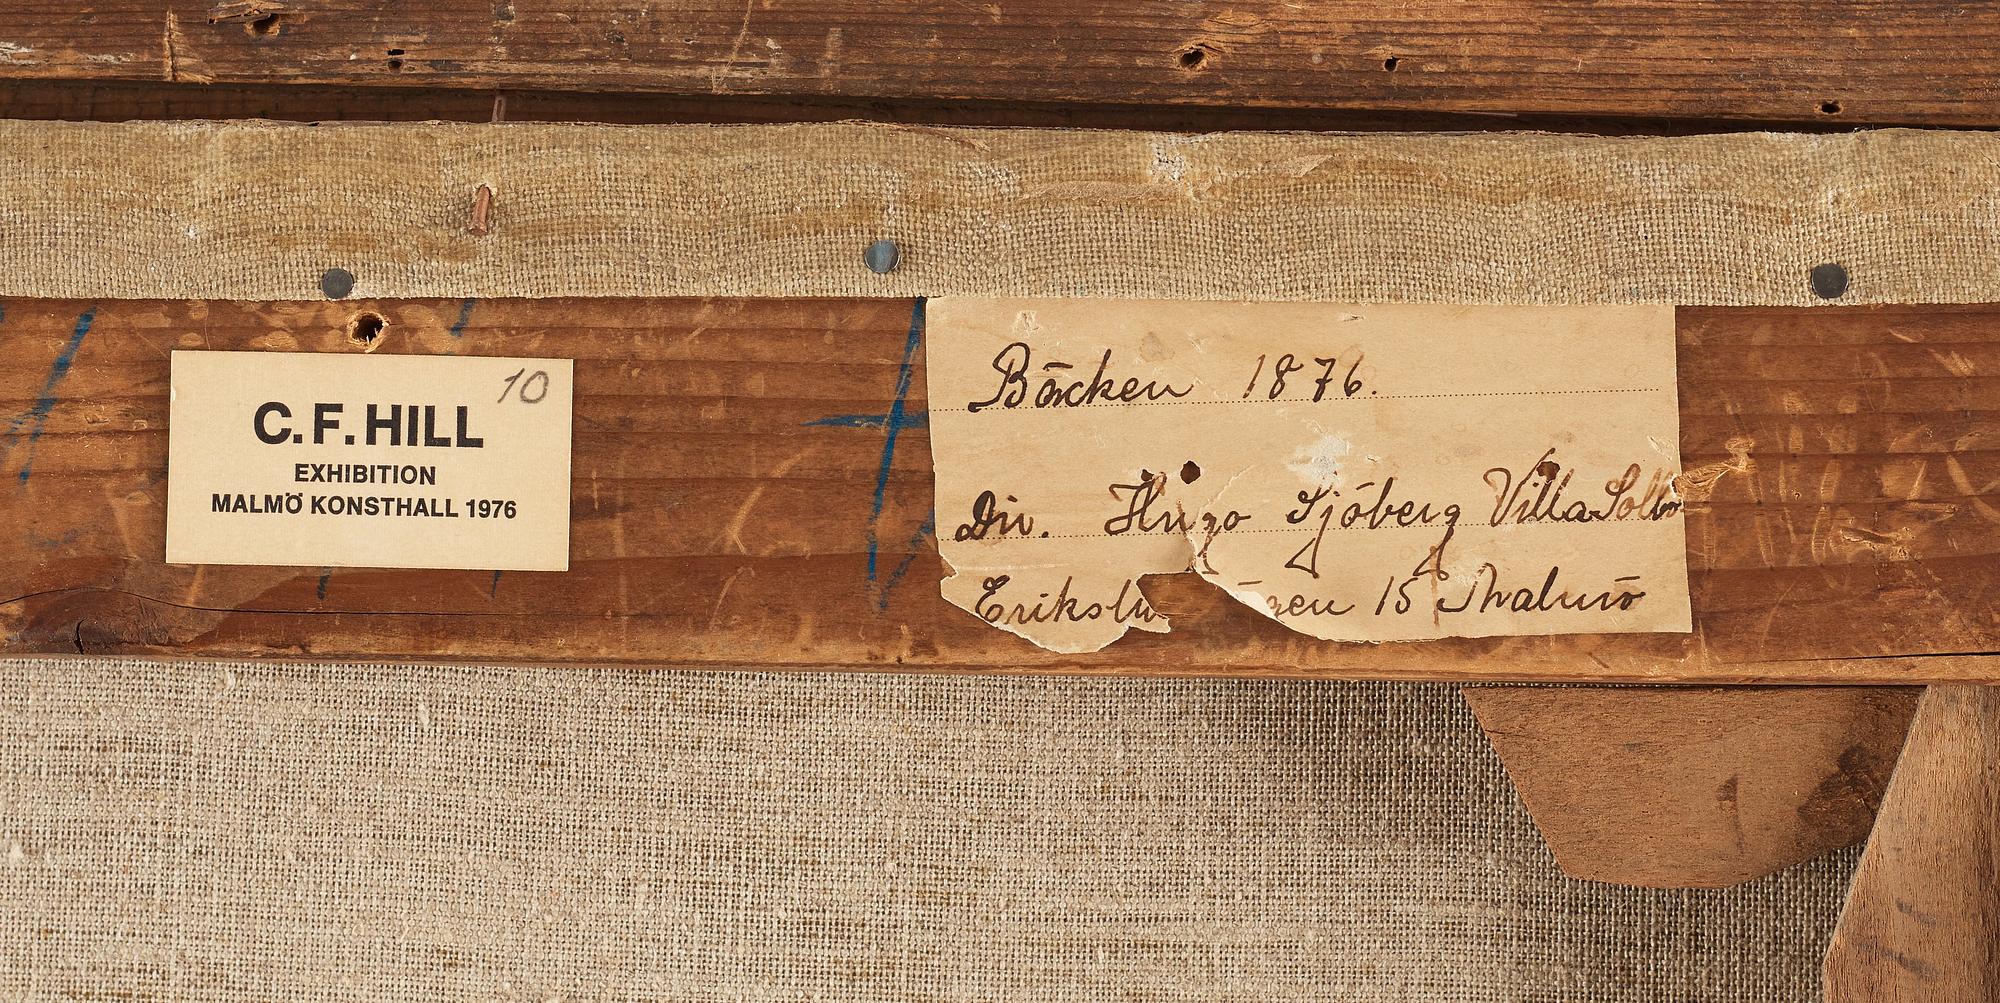 10
C.F. HILL
EXHIBITION
MALMÖ KONSTHALL 1976
Bäcken 1876.
Dir. Hugo Sjöberg Villa
15 Malmö